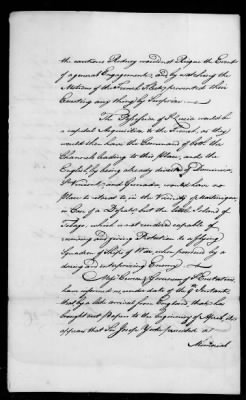 the cautious Rodney would not Risque the Event
of a general Engagement, and by watching the
Motions of the French Fleet prevented their
Executing any thing by Surprise —
The Possession of St Lucia would be
a capital Acquisition to the French, as they
would then have the Command of both the
Channels leading to this Place, and the
English, by being already divested of Dominica,
St Vincent, and Grenada, would have no
Place to retreat to in the Vicinity of Martinique,
in Case of a Defeat, but the little Island of
Tobago, which is not rendered capable of
receiving and giving Protection to a flying
Squadron of Ships of War, when pursued by a
daring and enterprizing Enemy. —
Messrs Governors of St Eustatius
have informed me under date of the 9th Instant,
that by a late arrival from England that has
brought out Papers to the beginning of April, it
appears that Sir Joseph Yorke presented a
Memorial